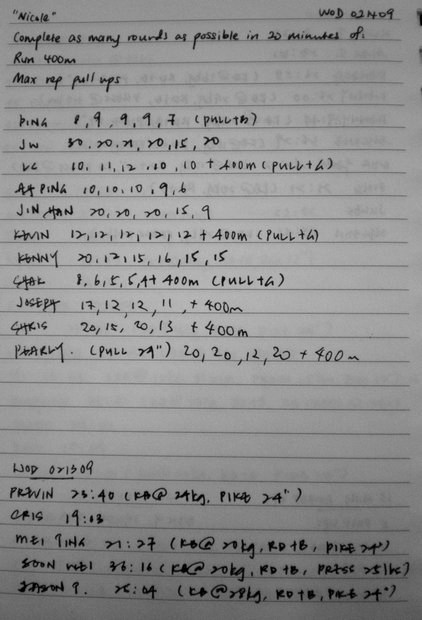 "Nicole" WOD 021409
Complete as many rounds as possible in 20 minutes of:
Run 400m
Max rep pull ups
PING 8, 9, 9, 9, 7 (PULL+B)
JW 30, 20, 21, 20, 15, 20
10, 11, 12, 10, 10 + 400m (PULL+G)
PING 10, 10, 10, 9, 6
JIN HAN 20, 20, 20, 15, 9
KEVIN 12, 12, 12, 12, 12 + 400m (PULL+G)
KENNY 20, 17, 15, 16, 15, 15
8, 6, 5, 5, 4 + 400m (PULL+G)
JOSEPH 17, 12, 12, 11, + 400m
CHRIS 20, 15, 20, 13 + 400m
PEARLY. (PULL 29") 20, 20, 12, 20 + 400m
WOD 021309
PREVIN 23:40 (KB@ 24kg, PIKE 24")
CRIS 19:03
MEI PING 21:27 (KB@ 20kg, RD+B, PIKE 24")
SOON WEI 36:16 (KB@ 20kg, RD+B, PRESS 25lbs)
JASON T. 25:04 (KB@ 28kg, RD+B, PIKE 24")